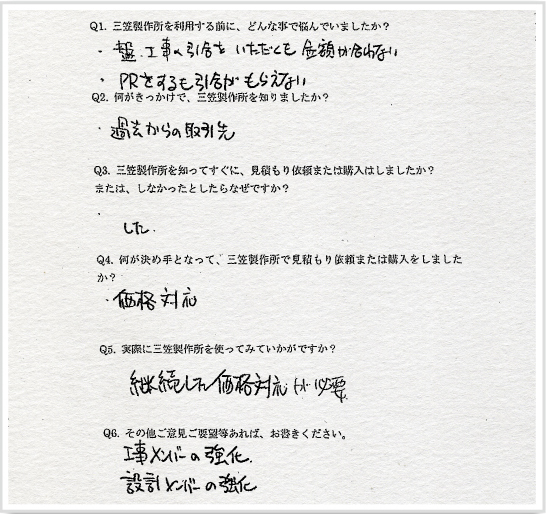 Q1. 三笠製作所を利用する前に、どんな事で悩んでいましたか?
・盤、工事の引合をいただくも金額が合わない
・PRをするも引合がもらえない
Q2. 何がきっかけで、三笠製作所を知りましたか?
・過去からの取引先
Q3. 三笠製作所を知ってすぐに、見積もり依頼または購入はしましたか?
または、しなかったとしたらなぜですか?
・
した.
Q4. 何が決め手となって、三笠製作所で見積もり依頼または購入をしました
か?
・価格対応
Q5. 実際に三笠製作所を使ってみていかがですか?
継続した価格対応が必要
Q6. その他ご意見ご要望等あれば、お書きください。
工事メンバーの強化.
設計メンバーの強化